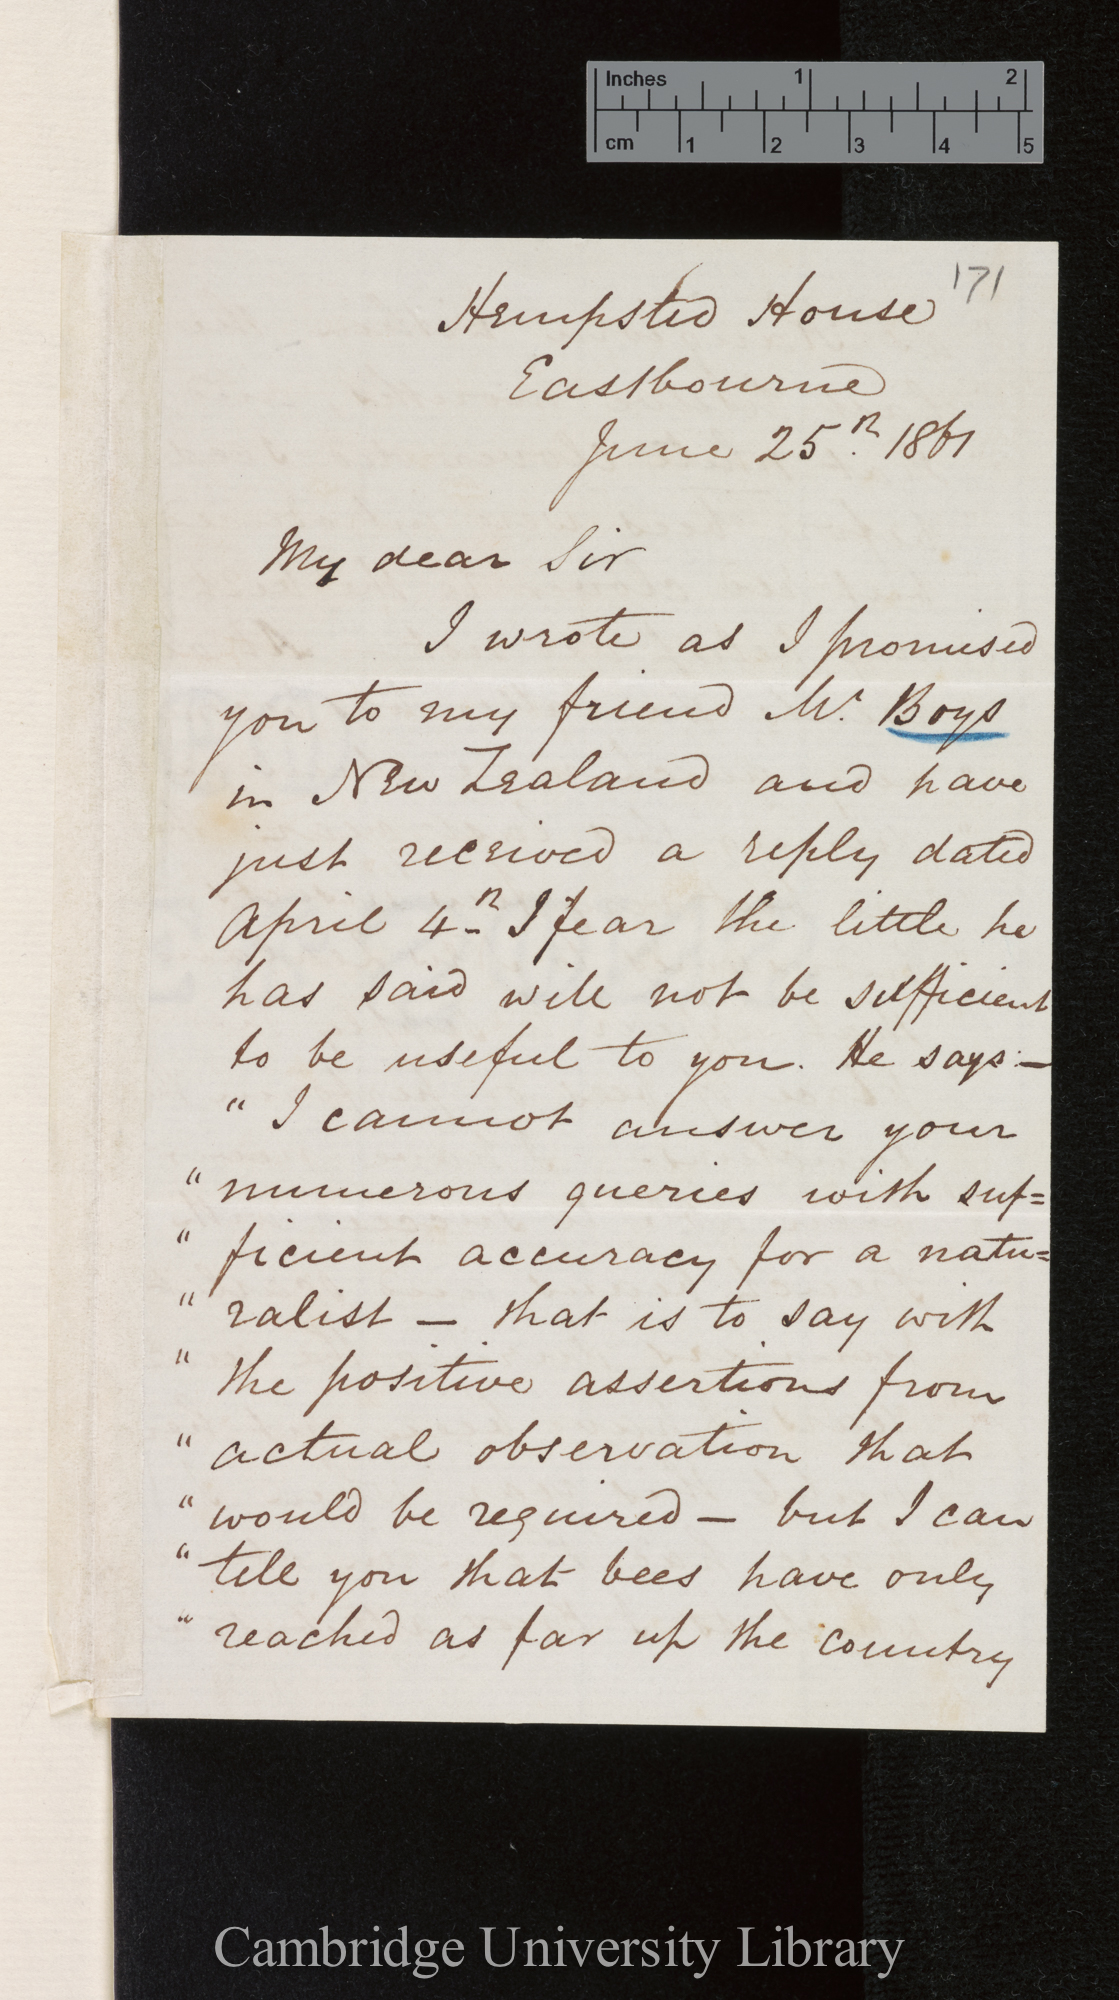 Inches 1 2
cm 1 2 3 4 5
171
Hempsted House
Eastbourne
June 25th. 1861
My dear Sir
I wrote as I promised
you to my friend Mr. Boys
in New Zealand and have
just received a reply dated
April 4th I fear the little he
has said will not be sufficient
to be useful to you. He says:—
" I cannot answer your
" numerous queries with suf=
" ficient accuracy for a natu=
" ralist — that is to say with
" the positive assertions from
" actual observation that
" would be required — but I can
" tell you that bees have only
" reached as far up the country
Cambridge University Library